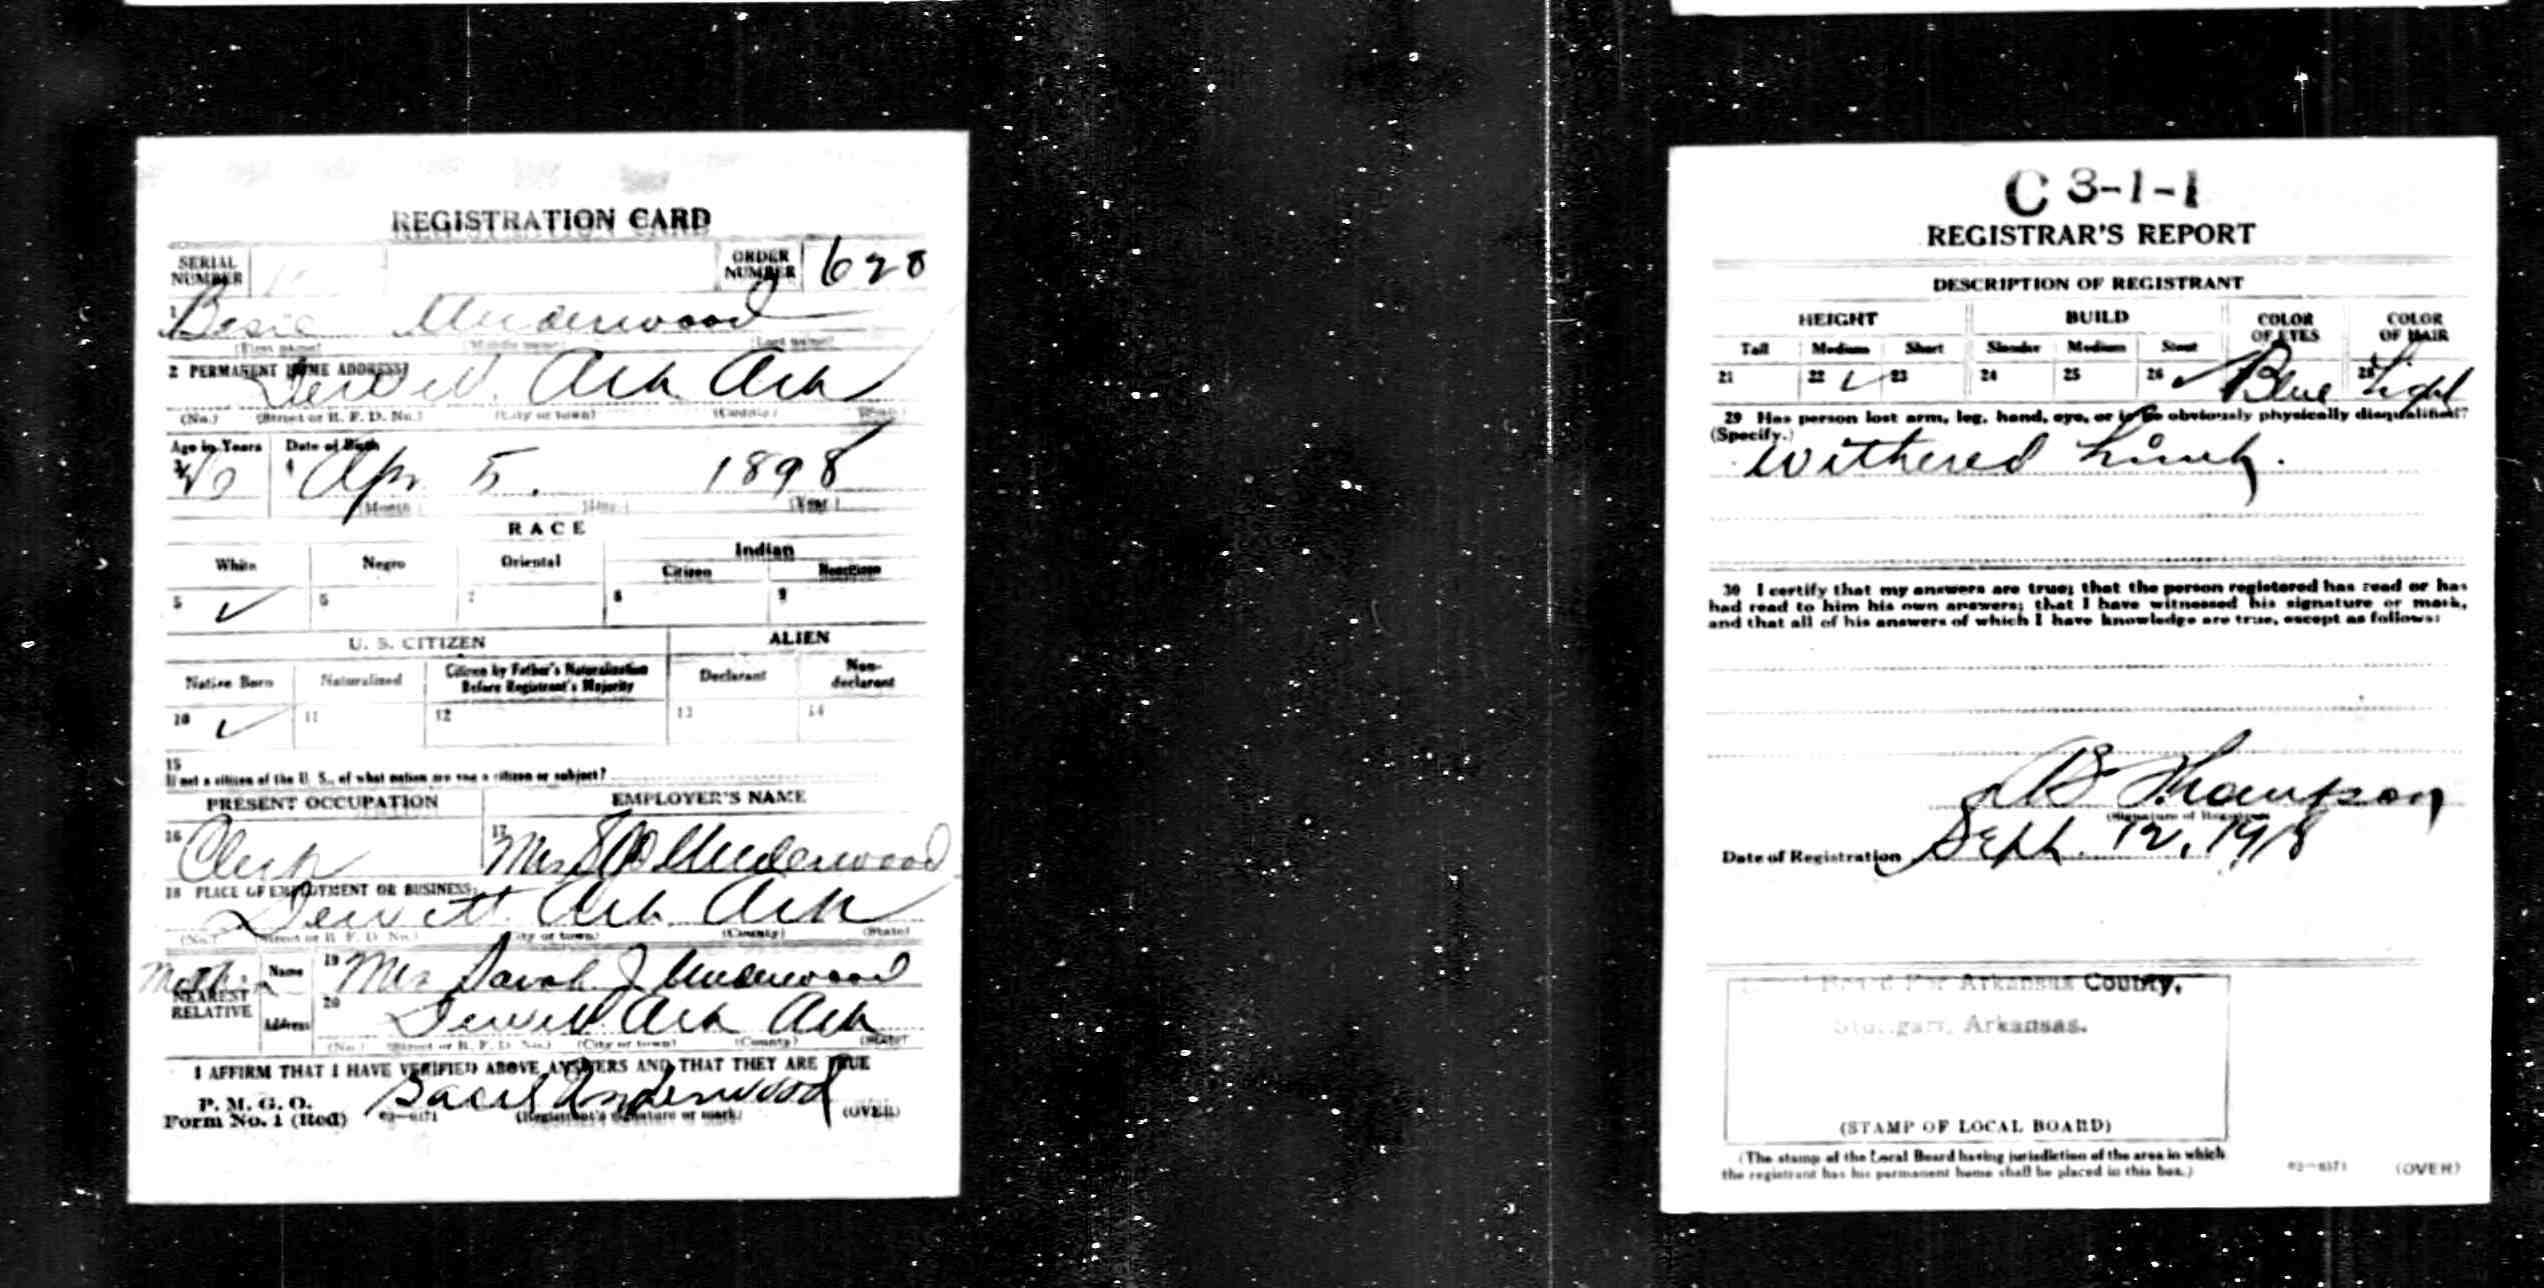 REGISTRATION CARD
SERIAL NUMBER
ORDER NUMBER 628
1 Basie Underwood
(First name) (Middle name) (Last name)
2 PERMANENT HOME ADDRESS:
Dewitt Ark Ark
(No.) (Street or R. F. D. No.) (City or town) (County) (State)
Age in Years Date of Birth
3 20 4 Apr 5. 1898
(Month) (Day) (Year)
RACE
White Negro Oriental Indian
Citizen Noncitizen
5 ✓ 6 7 8 9
U. S. CITIZEN ALIEN
Native Born Naturalized Citizen by Father's Naturalization Before Registrant's Majority Declarant Non-declarant
10 ✓ 11 12 13 14
15
If not a citizen of the U. S., of what nation are you a citizen or subject?
PRESENT OCCUPATION EMPLOYER'S NAME
16 Clerk 17 Mrs Underwood
18 PLACE OF EMPLOYMENT OR BUSINESS:
Dewitt Ark Ark
(No.) (Street or R. F. D. No.) (City or town) (County) (State)
Mother
NEAREST RELATIVE
Name 19 Mrs Sarah J Underwood
Address 20 Dewitt Ark Ark
(No.) (Street or R. F. D. No.) (City or town) (County) (State)
I AFFIRM THAT I HAVE VERIFIED ABOVE ANSWERS AND THAT THEY ARE TRUE
P. M. G. O.
Form No. 1 (Red) 03—6171 Underwood
(Registrant's signature or mark) (OVER)
C 3-1-1
REGISTRAR'S REPORT
DESCRIPTION OF REGISTRANT
HEIGHT BUILD COLOR OF EYES COLOR OF HAIR
Tall Medium Short Slender Medium Stout
21 22 ✓ 23 24 25 26 ✓ Blue 28 Light
29 Has person lost arm, leg, hand, eye, or is he obviously physically disqualified?
(Specify.)
Withered Limb.
30 I certify that my answers are true; that the person registered has read or has
had read to him his own answers; that I have witnessed his signature or mark,
and that all of his answers of which I have knowledge are true, except as follows:
Thompson
(Signature of Registrar)
Date of Registration Sept. 12, 1918
Board For Arkansas County,
Stuttgart, Arkansas.
(STAMP OF LOCAL BOARD)
(The stamp of the Local Board having jurisdiction of the area in which
the registrant has his permanent home shall be placed in this box.)
03—6171 (OVER)